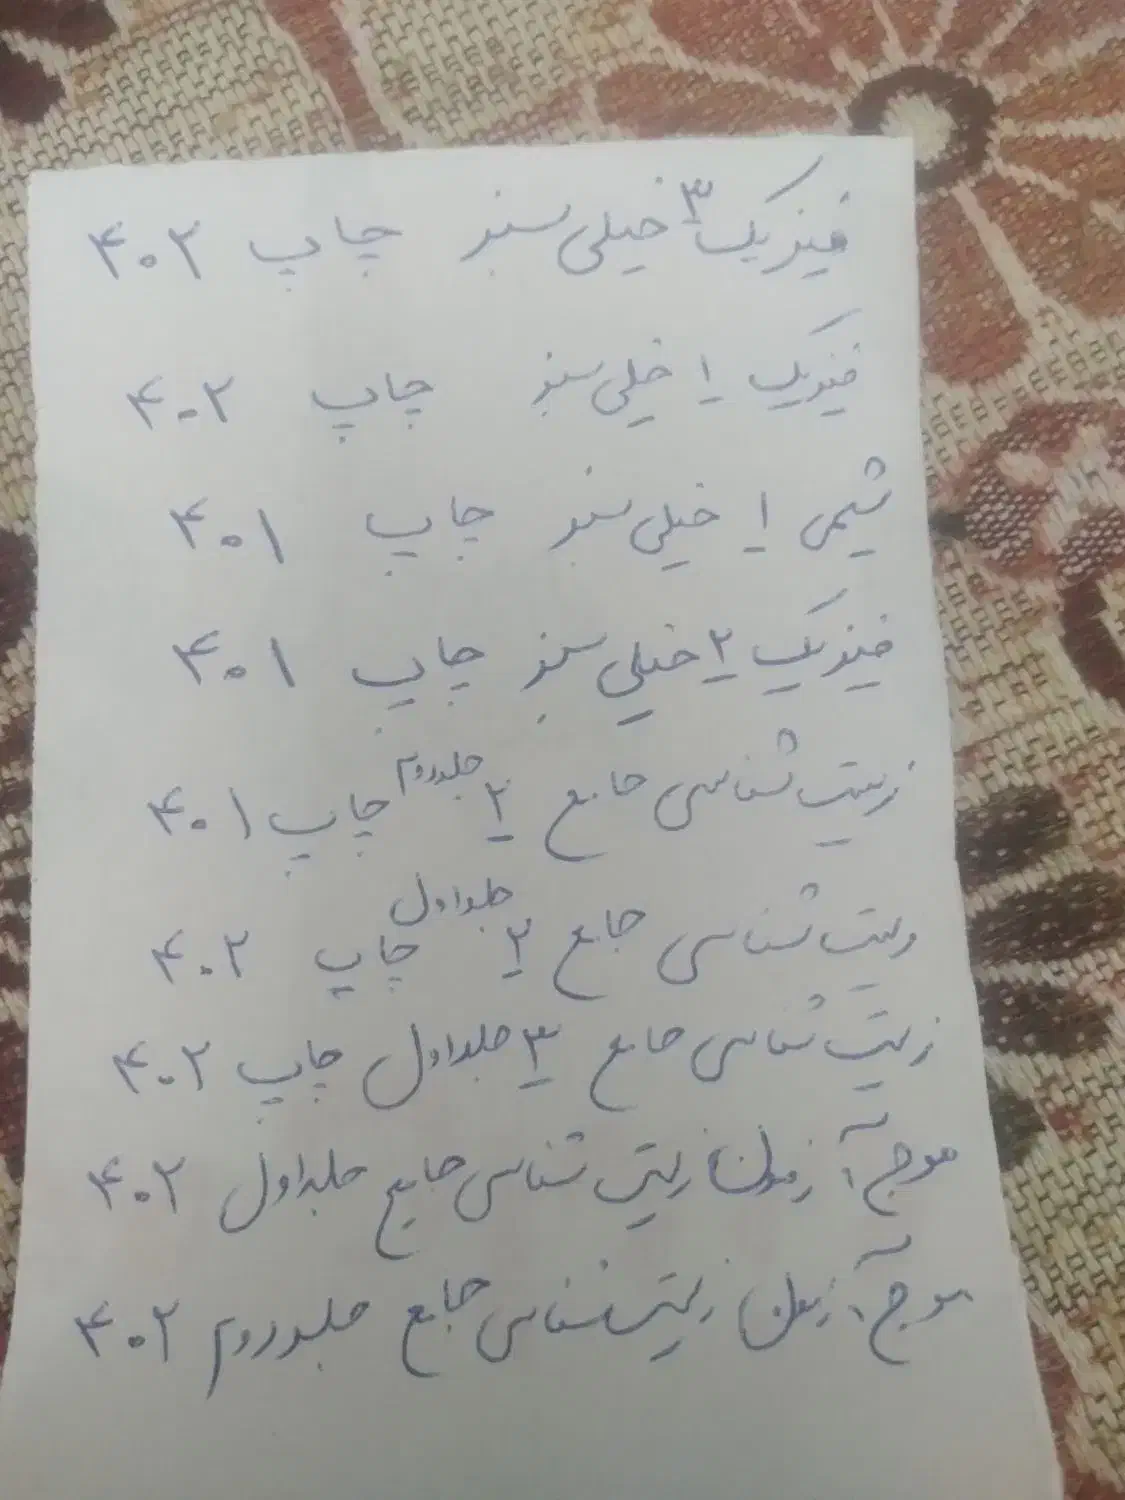 فیزیک ۳ خیلی سبز چاپ ۴۰۲
فیزیک ۱ خیلی سبز چاپ ۴۰۲
شیمی ۱ خیلی سبز چاپ ۴۰۱
فیزیک ۲ خیلی سبز چاپ ۴۰۱
زیست شناسی جامع ۲ جلد دوم چاپ ۴۰۱
زیست شناسی جامع ۲ جلد اول چاپ ۴۰۲
زیست شناسی جامع ۳ جلد اول چاپ ۴۰۲
موج آزمون زیست شناسی جامع جلد اول ۴۰۲
موج آزمون زیست شناسی جامع جلد دوم ۴۰۲